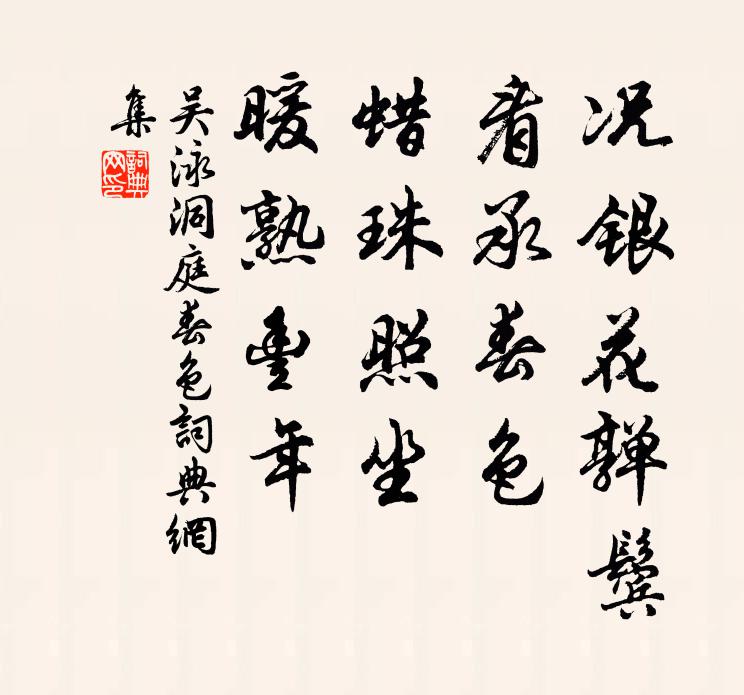 况銀花嚲鬢
看承春色
蜡珠照坐
暖熟豐年
吴泳洞庭春色詞典網
集
詞典
网印